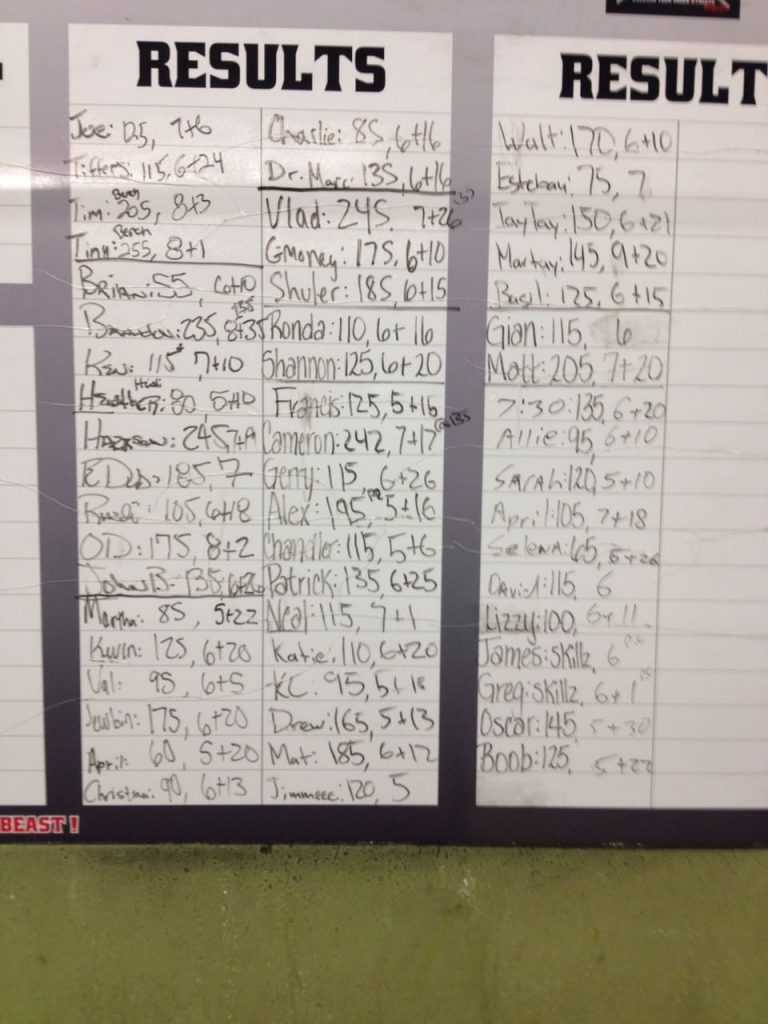 RESULTS
Joe: 125, 7+6
Tiffers: 115, 6+24
Bench
Tim: 205, 8+3
Bench
Tiny: 255, 8+1
Brian: 55, 6+10
135
235, 8+35
Ken: 115, 7+10
Heidi
80, 5+10
245, 7+9
185, 7
105, 6+18
OD: 175, 8+2
John B- 135,
Martha: 85, 5+22
Kevin: 125, 6+20
Val: 95, 6+5
175, 6+20
April: 60, 5+20
Christina: 90, 6+13
Charlie: 85, 6+16
Dr. Marc: 135, 6+16
Vlad: 245, 7+26
Gmoney: 175, 6+10
Shuler: 185, 6+15
Ronda: 110, 6+16
Shannon: 125, 6+20
Francis: 125, 5+16
@135
Cameron: 242, 7+17
Gerry: 115, 6+26
Alex: 195, 5+16
Chandler: 115, 5+6
Patrick: 135, 6+25
Neal: 115, 7+1
Katie: 110, 6+20
KC: 95, 5+18
Drew: 165, 5+13
Mat: 185, 6+12
Jimmeee: 120, 5
RESULT
Walt: 170, 6+10
Esteban: 75, 7
TayTay: 150, 6+21
Martay: 145, 9+20
Basil: 125, 6+15
Gian: 115, 6
Matt: 205, 7+20
7:30: 135, 6+20
Allie: 95, 6+10
Sarah: 120, 5+10
April: 105, 7+18
Selena: 65,
David: 115, 6
Lizzy: 100, 6+11
James: skillz, 6
Greg: skillz, 6+1
Oscar: 145, 5+30
Boob: 125, 5+22
BEAST!